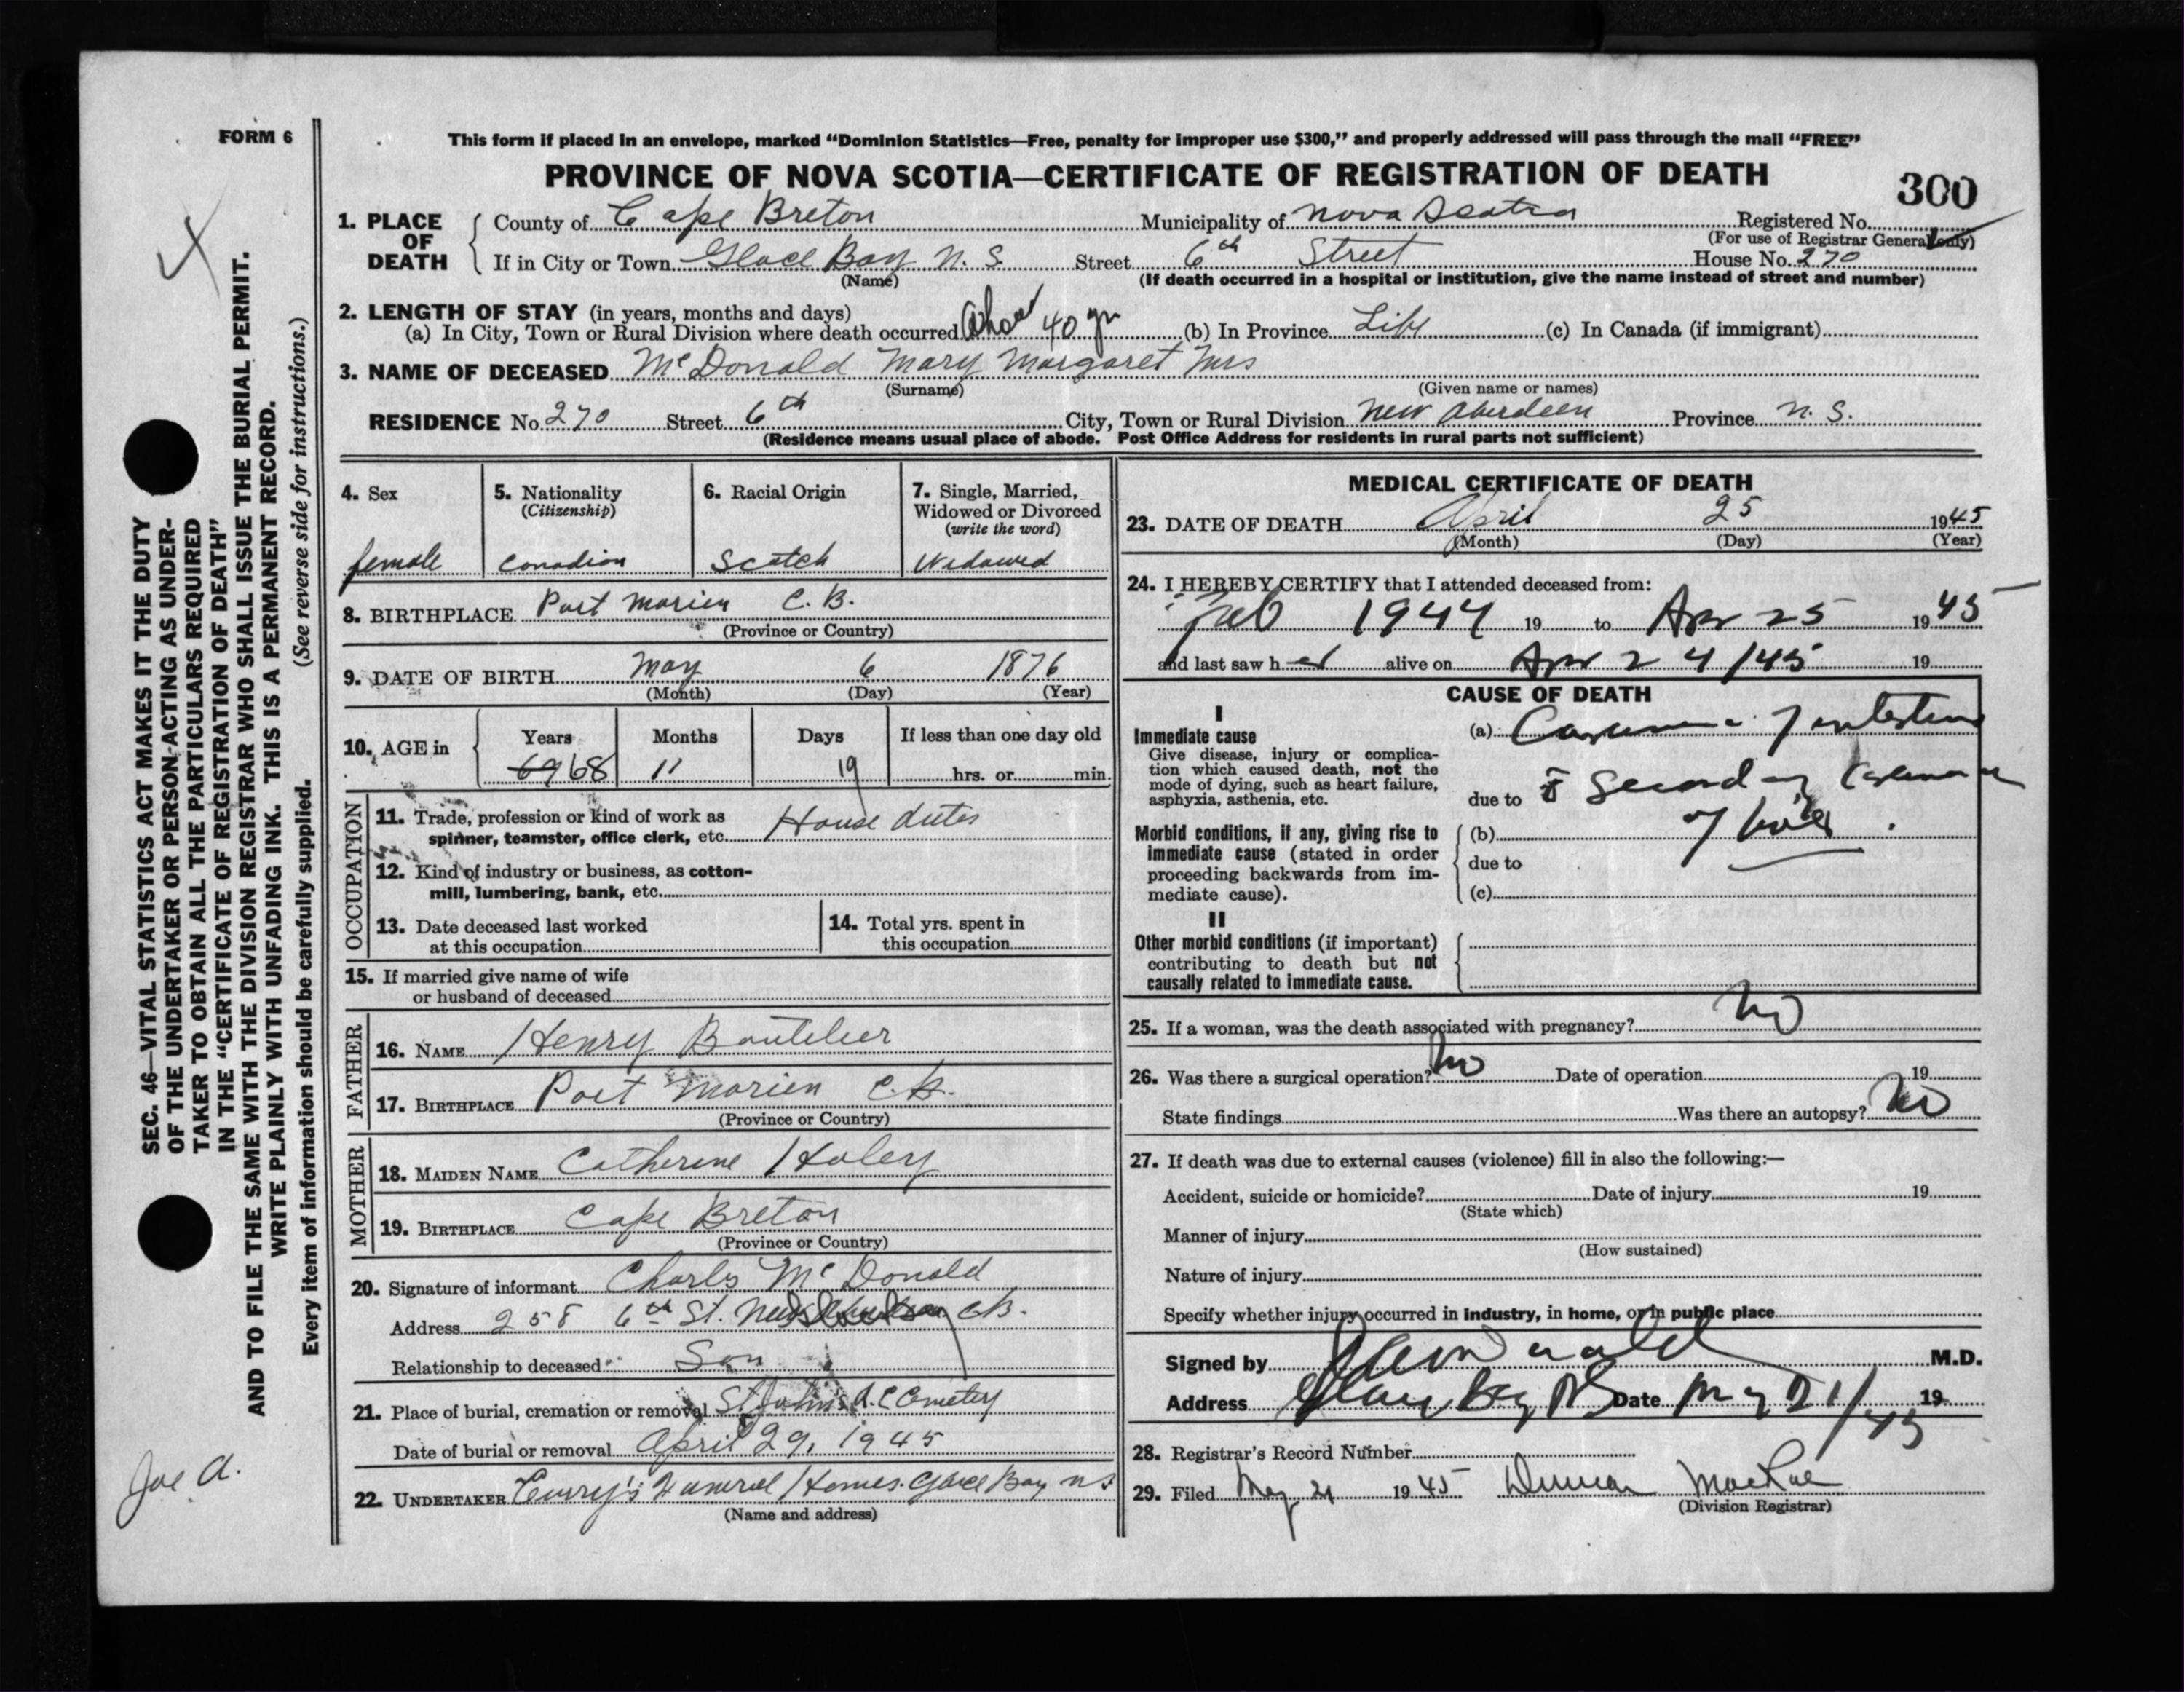 FORM 6
This form if placed in an envelope, marked “Dominion Statistics—Free, penalty for improper use $300,” and properly addressed will pass through the mail “FREE”
PROVINCE OF NOVA SCOTIA—CERTIFICATE OF REGISTRATION OF DEATH
300
1. PLACE OF DEATH
County of Cape Breton Municipality of Nova Scotia Registered No.
(For use of Registrar General only)
If in City or Town Glace Bay N. S. Street 6th Street House No. 270
(Name) (If death occurred in a hospital or institution, give the name instead of street and number)
2. LENGTH OF STAY (in years, months and days)
(a) In City, Town or Rural Division where death occurred About 40 yr (b) In Province Life (c) In Canada (if immigrant)
3. NAME OF DECEASED McDonald Mary Margaret Mrs
(Surname) (Given name or names)
RESIDENCE No. 270 Street 6th City, Town or Rural Division New Aberdeen Province N. S.
(Residence means usual place of abode. Post Office Address for residents in rural parts not sufficient)
4. Sex
female
5. Nationality
(Citizenship)
Canadian
6. Racial Origin
Scotch
7. Single, Married,
Widowed or Divorced
(write the word)
Widowed
8. BIRTHPLACE Port Morien C. B.
(Province or Country)
9. DATE OF BIRTH May 6 1876
(Month) (Day) (Year)
10. AGE in
Years Months Days If less than one day old
69 68 11 19 hrs. or min.
OCCUPATION
11. Trade, profession or kind of work as
spinner, teamster, office clerk, etc. House duties
12. Kind of industry or business, as cotton-
mill, lumbering, bank, etc.
13. Date deceased last worked
at this occupation
14. Total yrs. spent in
this occupation
15. If married give name of wife
or husband of deceased
FATHER
16. NAME Henry Boutilier
17. BIRTHPLACE Port Morien C.B.
(Province or Country)
MOTHER
18. MAIDEN NAME Catherine Holey
19. BIRTHPLACE Cape Breton
(Province or Country)
20. Signature of informant Charles McDonald
Address 258 6th St. New Aberdeen C.B.
Relationship to deceased Son
21. Place of burial, cremation or removal St John's R.C Cemetery
Date of burial or removal April 29, 1945
22. UNDERTAKER Curry's Funeral Homes. Glace Bay N S
(Name and address)
MEDICAL CERTIFICATE OF DEATH
23. DATE OF DEATH April 25 1945
(Month) (Day) (Year)
24. I HEREBY CERTIFY that I attended deceased from:
Feb 1944 19 to Apr 25 1945
and last saw her alive on Apr 24/45 19
CAUSE OF DEATH
I
Immediate cause
Give disease, injury or complica-
tion which caused death, not the
mode of dying, such as heart failure,
asphyxia, asthenia, etc.
(a) Carcinoma of intestine
due to c̄ Secondary Carcinoma
Morbid conditions, if any, giving rise to
immediate cause (stated in order
proceeding backwards from im-
mediate cause).
(b) of liver.
due to
(c)
II
Other morbid conditions (if important)
contributing to death but not
causally related to immediate cause.
25. If a woman, was the death associated with pregnancy? No
26. Was there a surgical operation? No Date of operation 19
State findings Was there an autopsy? No
27. If death was due to external causes (violence) fill in also the following:—
Accident, suicide or homicide? Date of injury 19
(State which)
Manner of injury
(How sustained)
Nature of injury
Specify whether injury occurred in industry, in home, or in public place
Signed by M.D.
Address Glace Bay NS Date May 21/45 19
28. Registrar's Record Number
29. Filed May 21 1945 Duncan MacRae
(Division Registrar)
SEC. 46—VITAL STATISTICS ACT MAKES IT THE DUTY
OF THE UNDERTAKER OR PERSON ACTING AS UNDER-
TAKER TO OBTAIN ALL THE PARTICULARS REQUIRED
IN THE “CERTIFICATE OF REGISTRATION OF DEATH”
AND TO FILE THE SAME WITH THE DIVISION REGISTRAR WHO SHALL ISSUE THE BURIAL PERMIT.
WRITE PLAINLY WITH UNFADING INK. THIS IS A PERMANENT RECORD.
Every item of information should be carefully supplied. (See reverse side for instructions.)
Joe A.